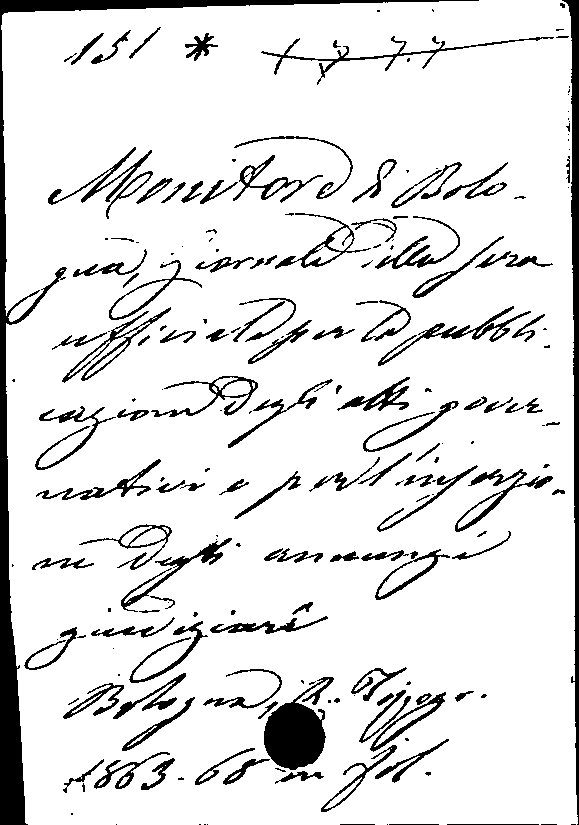 151 * 1 7 7.7
Monitore di Bolo-
gna, giornale della sera
ufficiale per la pubbli-
cazione degli atti gover-
nativi e per l'inserzio-
ne degli annunzi
giudiziari
Bologna, R. Tipogr.
1863-68 in fol.